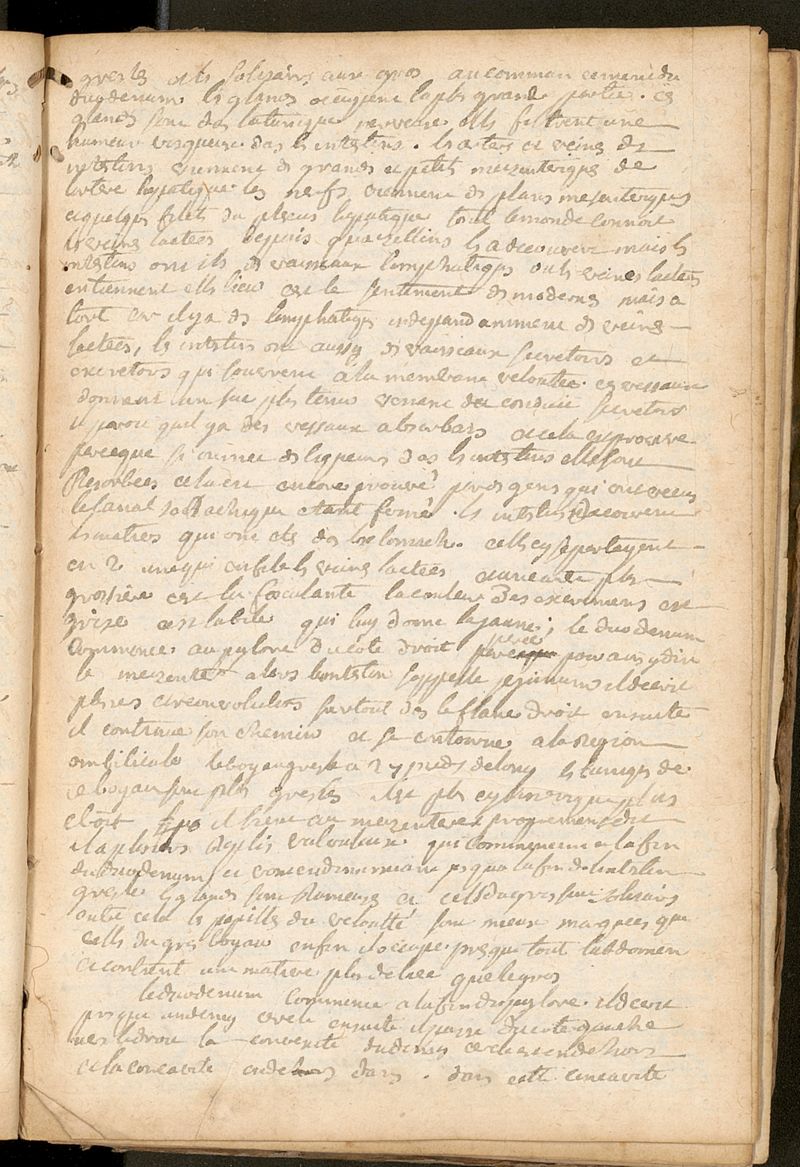 gresles et les solitaires aux gros au commancement du
duodenum les glandes occupent la plus grande partie. ces
glandes sont dans la tunique nerveuse elles filtrent une
humeur visqueuse dans les intestins. les arteres et veines des
intestins viennent des grandes et petites mezenteriques de
lartere hepatique les nerfs viennent des plexus mezenteriques
et quelques filets du plexus hepatique tout le monde connoit
les veines lactées depuis quazellius les a decouvert mais les
intestins ont ils des vaisseaux lymphatiques ou les veines lactées
en tiennent elles lieu cest le sentiment des modernes mais a
tort car il y a des lymphatiques independamment des veines
lactées, les intestins ont aussy des vaisseaux secretoires et
excretoires qui souvrent a la membrane veloutée. ces vessaux
donnent un suc plus tenu venant du conduit secretoire
il paroit quil y a des vessaux absorbans et cela est prouvé
parceque si on met des liqueurs dans les intestins elles sont
resorbées cela est encore prouvé par des gens qui ont vecu
le canal etant fermé. les intestins recoivent
les matieres qui ont eté dans lestomach. elles cy se partagent
en 2 une qui enfile les veines lactées et une autre plus
grossiere est la feculante la couleur des excremens est
grise cest la bile qui luy donne le jaune; le duodenum
commence au pylore du coté droit perce pour ainsy dire
le mezentere alors lintestin sappelle jejunum il decrit
plusieurs circonvolutions surtout dans le flanc droit ensuite
il continue son chemin et se contourne a la region
ombilicale le boyau gresle a 27 pieds de long les tuniques de
ce boyau sont plus gresles il est plus cylindrique plus
etroit il tient au mezentere proprement dit
il a plusieurs replis valvuleux qui commencent a la fin
du duodenum et vont en diminuant jusqua la fin de lintestin
gresle les glandes sont et celles du gros sont solitaires
outre cela les papilles du velouté sont mieux marquees que
celles du gros boyau enfin il occupe presque tout labdomen
et contient une matiere plus deliée que le gros
le duodenum commence a la fin du pylore. il decrit
presque un demy cercle ensuite il passe du coté gauche
vers le droit la convexité du demy cercle est en dehors
et la concavité en dedans. dans cette concavité